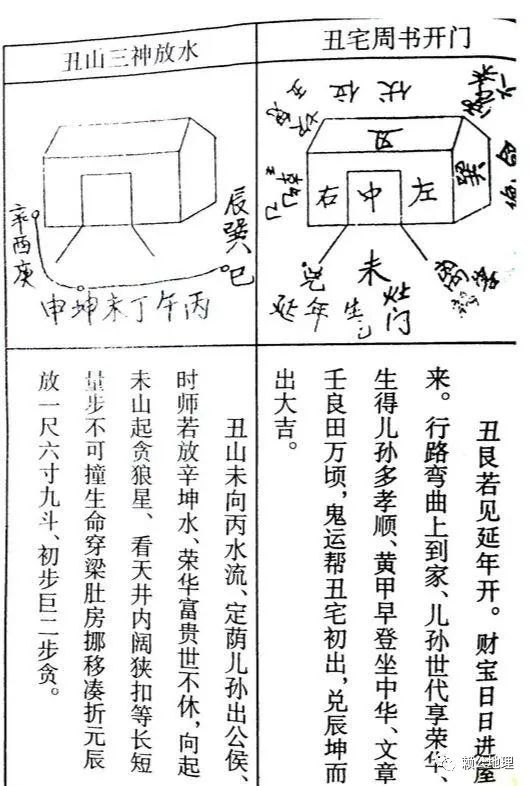 丑宅周书开门
伏位
丑
右 中 左
巽
未
延年 生
灶门
丑艮若见延年开。财宝日日进屋
来。行路弯曲上到家、儿孙世代享荣华、
生得儿孙多孝顺、黄甲早登坐中华、文章
壬良田万顷，鬼运帮丑宅初出，兑辰坤而
出大吉。
丑山三神放水
辛酉庚
申坤未丁午丙
辰巽巳
丑山未向丙水流、定荫儿孙出公侯、
时师若放辛坤水、荣华富贵世不休，向起
未山起贪狼星、看天井内阔狭扣等长短
量步不可撞生命穿梁肚房挪移凑折元辰
放一尺六寸九斗、初步巨二步贪。
赖公地理